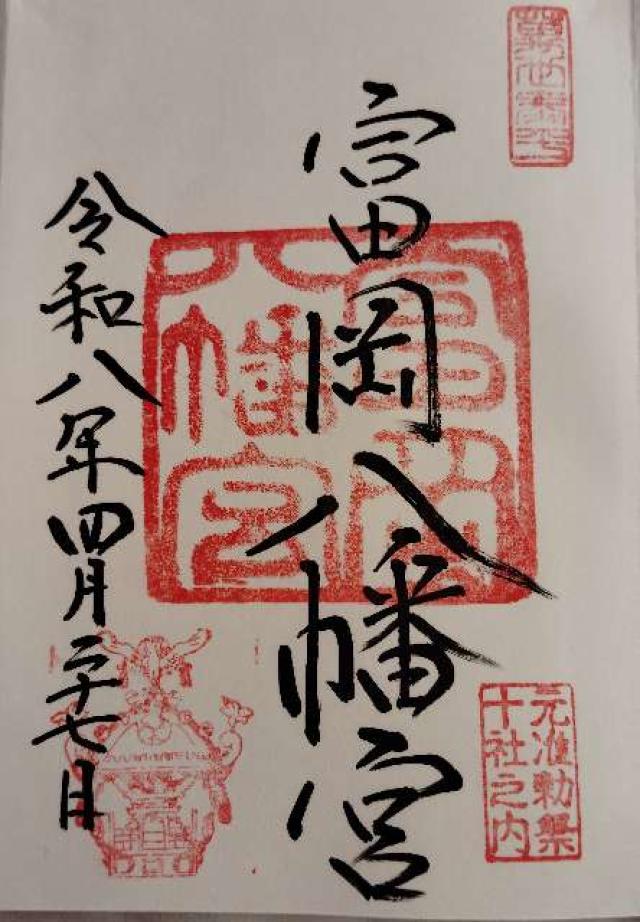 富岡八幡宮
富岡
八幡宮
元准勅祭
十社之内
令和八年四月二十七日